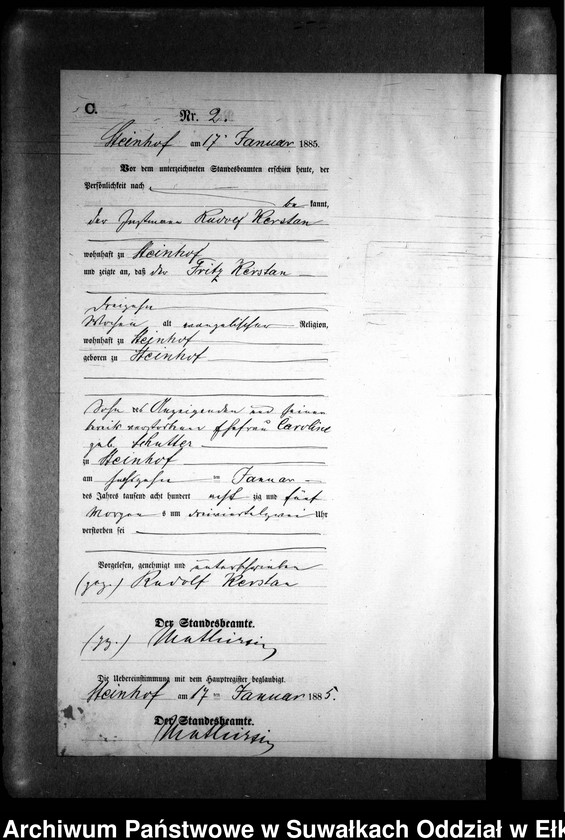 C.
Nr. 2.
Steinhof am 17 Januar 1885.
Vor dem unterzeichneten Standesbeamten erschien heute, der
Persönlichkeit nach
be kannt,
der Instmann Rudolf Kerstan
wohnhaft zu Steinhof
und zeigte an, daß der Fritz Kerstan
dreizehn
Wochen alt evangelischer Religion,
wohnhaft zu Steinhof
geboren zu Steinhof
Sohn des Anzeigenden und seiner
verstorbenen Ehefrau Caroline
geb. Schutter
zu Steinhof
am sechszehn ten Januar
des Jahres tausend acht hundert acht zig und fünf
Morgens um dreiviertelzwei Uhr
verstorben sei
Vorgelesen, genehmigt und unterschrieben
(gez.) Rudolf Kerstan
Der Standesbeamte.
(gz.)
Die Uebereinstimmung mit dem Hauptregister beglaubigt.
Steinhof am 17 ten Januar 1885.
Der Standesbeamte.
Archiwum Państwowe w Suwałkach Oddział w Ełk